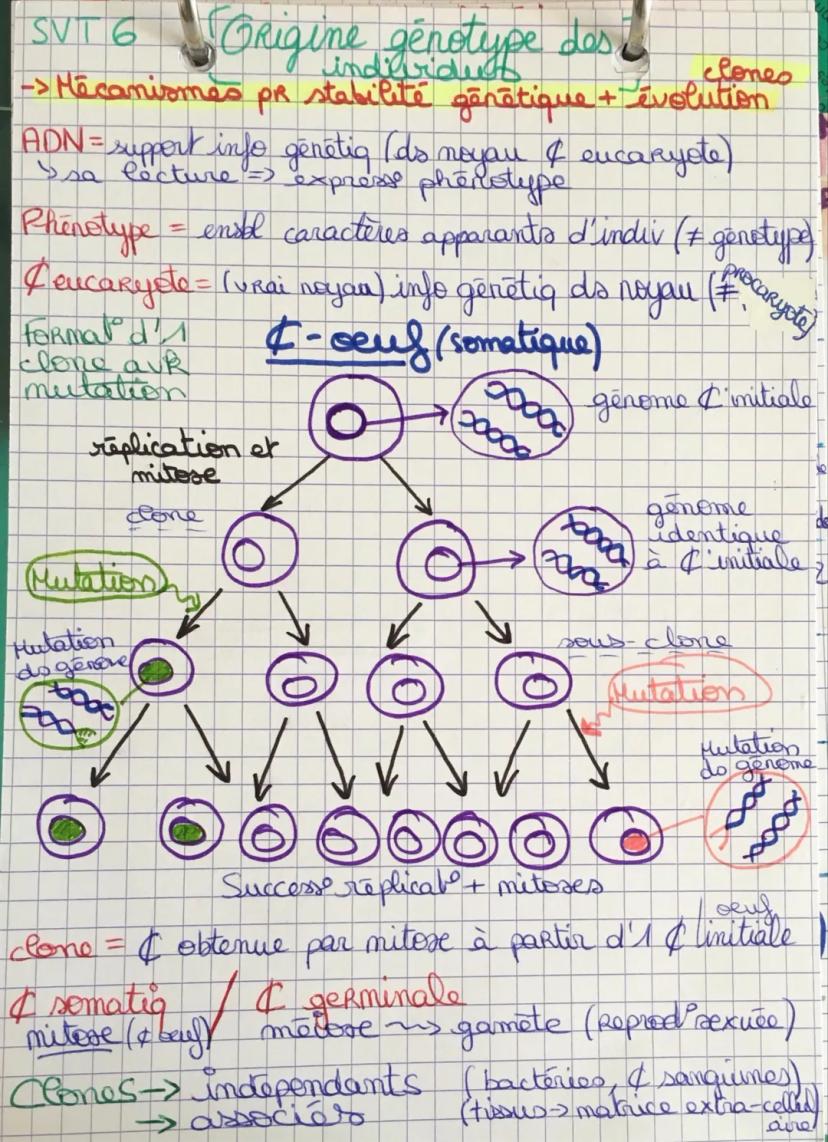 SVT 6 Origine génotype des
individus clones
-> Mécanismes pR stabilité génétique + évolution
ADN = support info génétiq (ds noyau ₵ eucaryote)
↳ sa lecture => expresso phénotype
Phénotype = ensbl caractères apparants d'indiv (≠ génotype)
₵ eucaryote = (vrai noyau) info génétiq ds noyau (≠ procaryote)
format° d'1
clone avR
mutation
₵-oeuf (somatique)
génome ₵ initiale
réplication et
mitose
clone
génome
identique
à ₵ initiale
Mutation
Mutation
ds génome
sous-clone
Mutation
Mutation
ds génome
Success° réplicat° + mitoses
clone = ₵ obtenue par mitose à partir d'1 ₵ initiale
oeuf
₵ somatiq / ₵ germinale
mitose (₵ oeuf) méiose ~> gamète (Reprod° sexuée)
Clones -> indépendants (bactéries, ₵ sanguines)
-> associés (tissus -> matrice extra-cellul
aire)